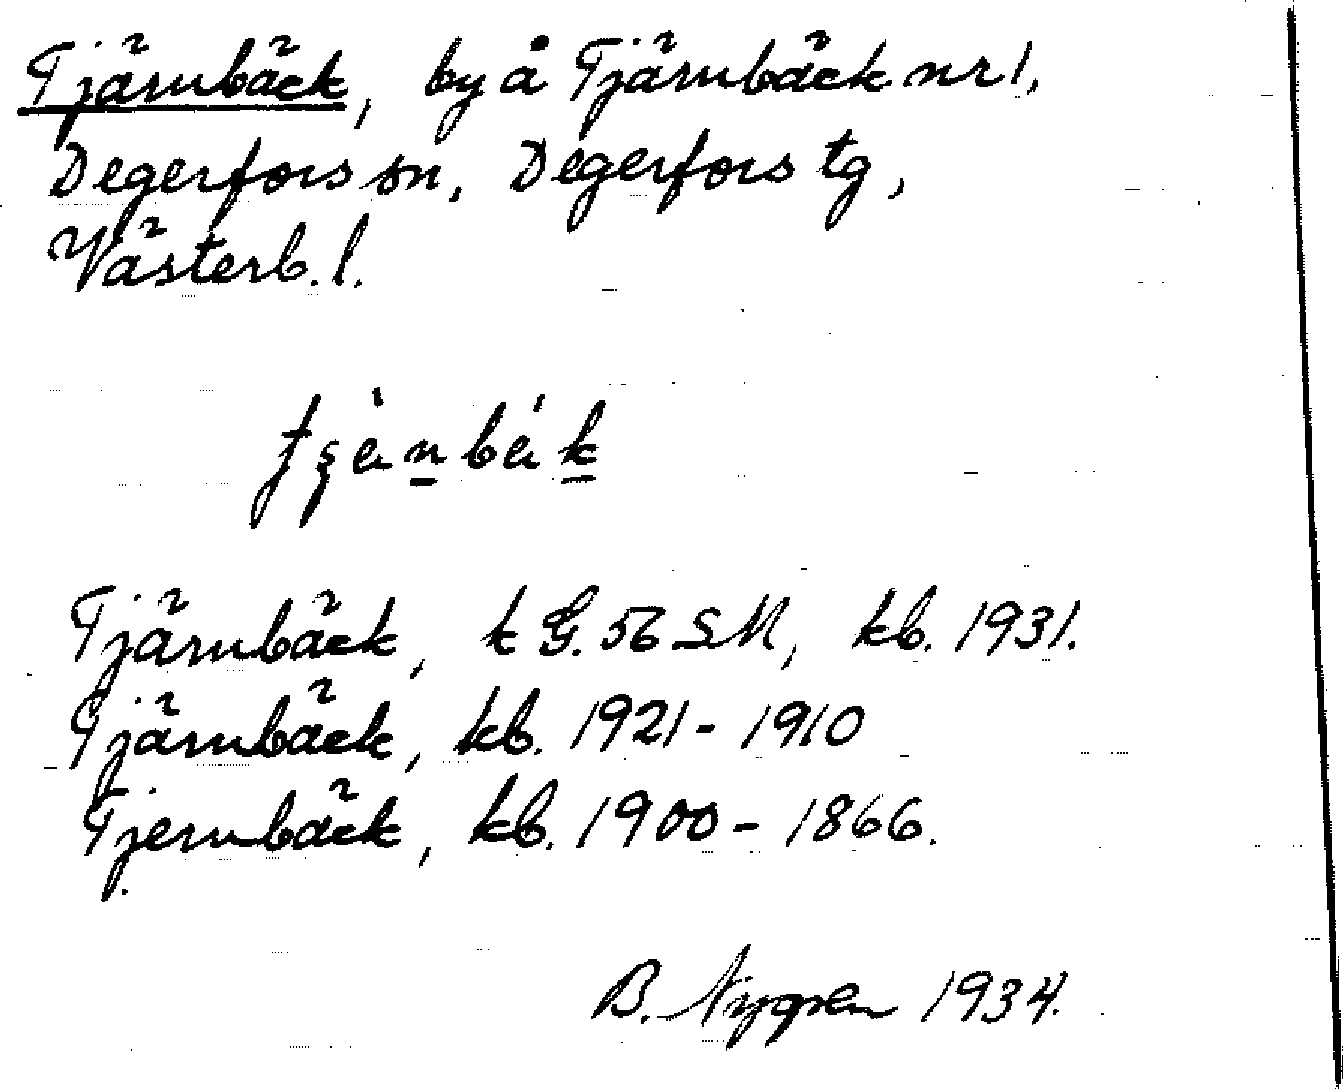 Tjärnbäck, by å Tjärnbäck nr 1,
Degerfors sn, Degerfors tg,
Västerb. l.
Tjärnbäck, k G. 56 SM, kb. 1931.
Tjärnbäck, kb. 1921 - 1910
Tjernbäck, kb. 1900 - 1866.
B. Nygren 1934.